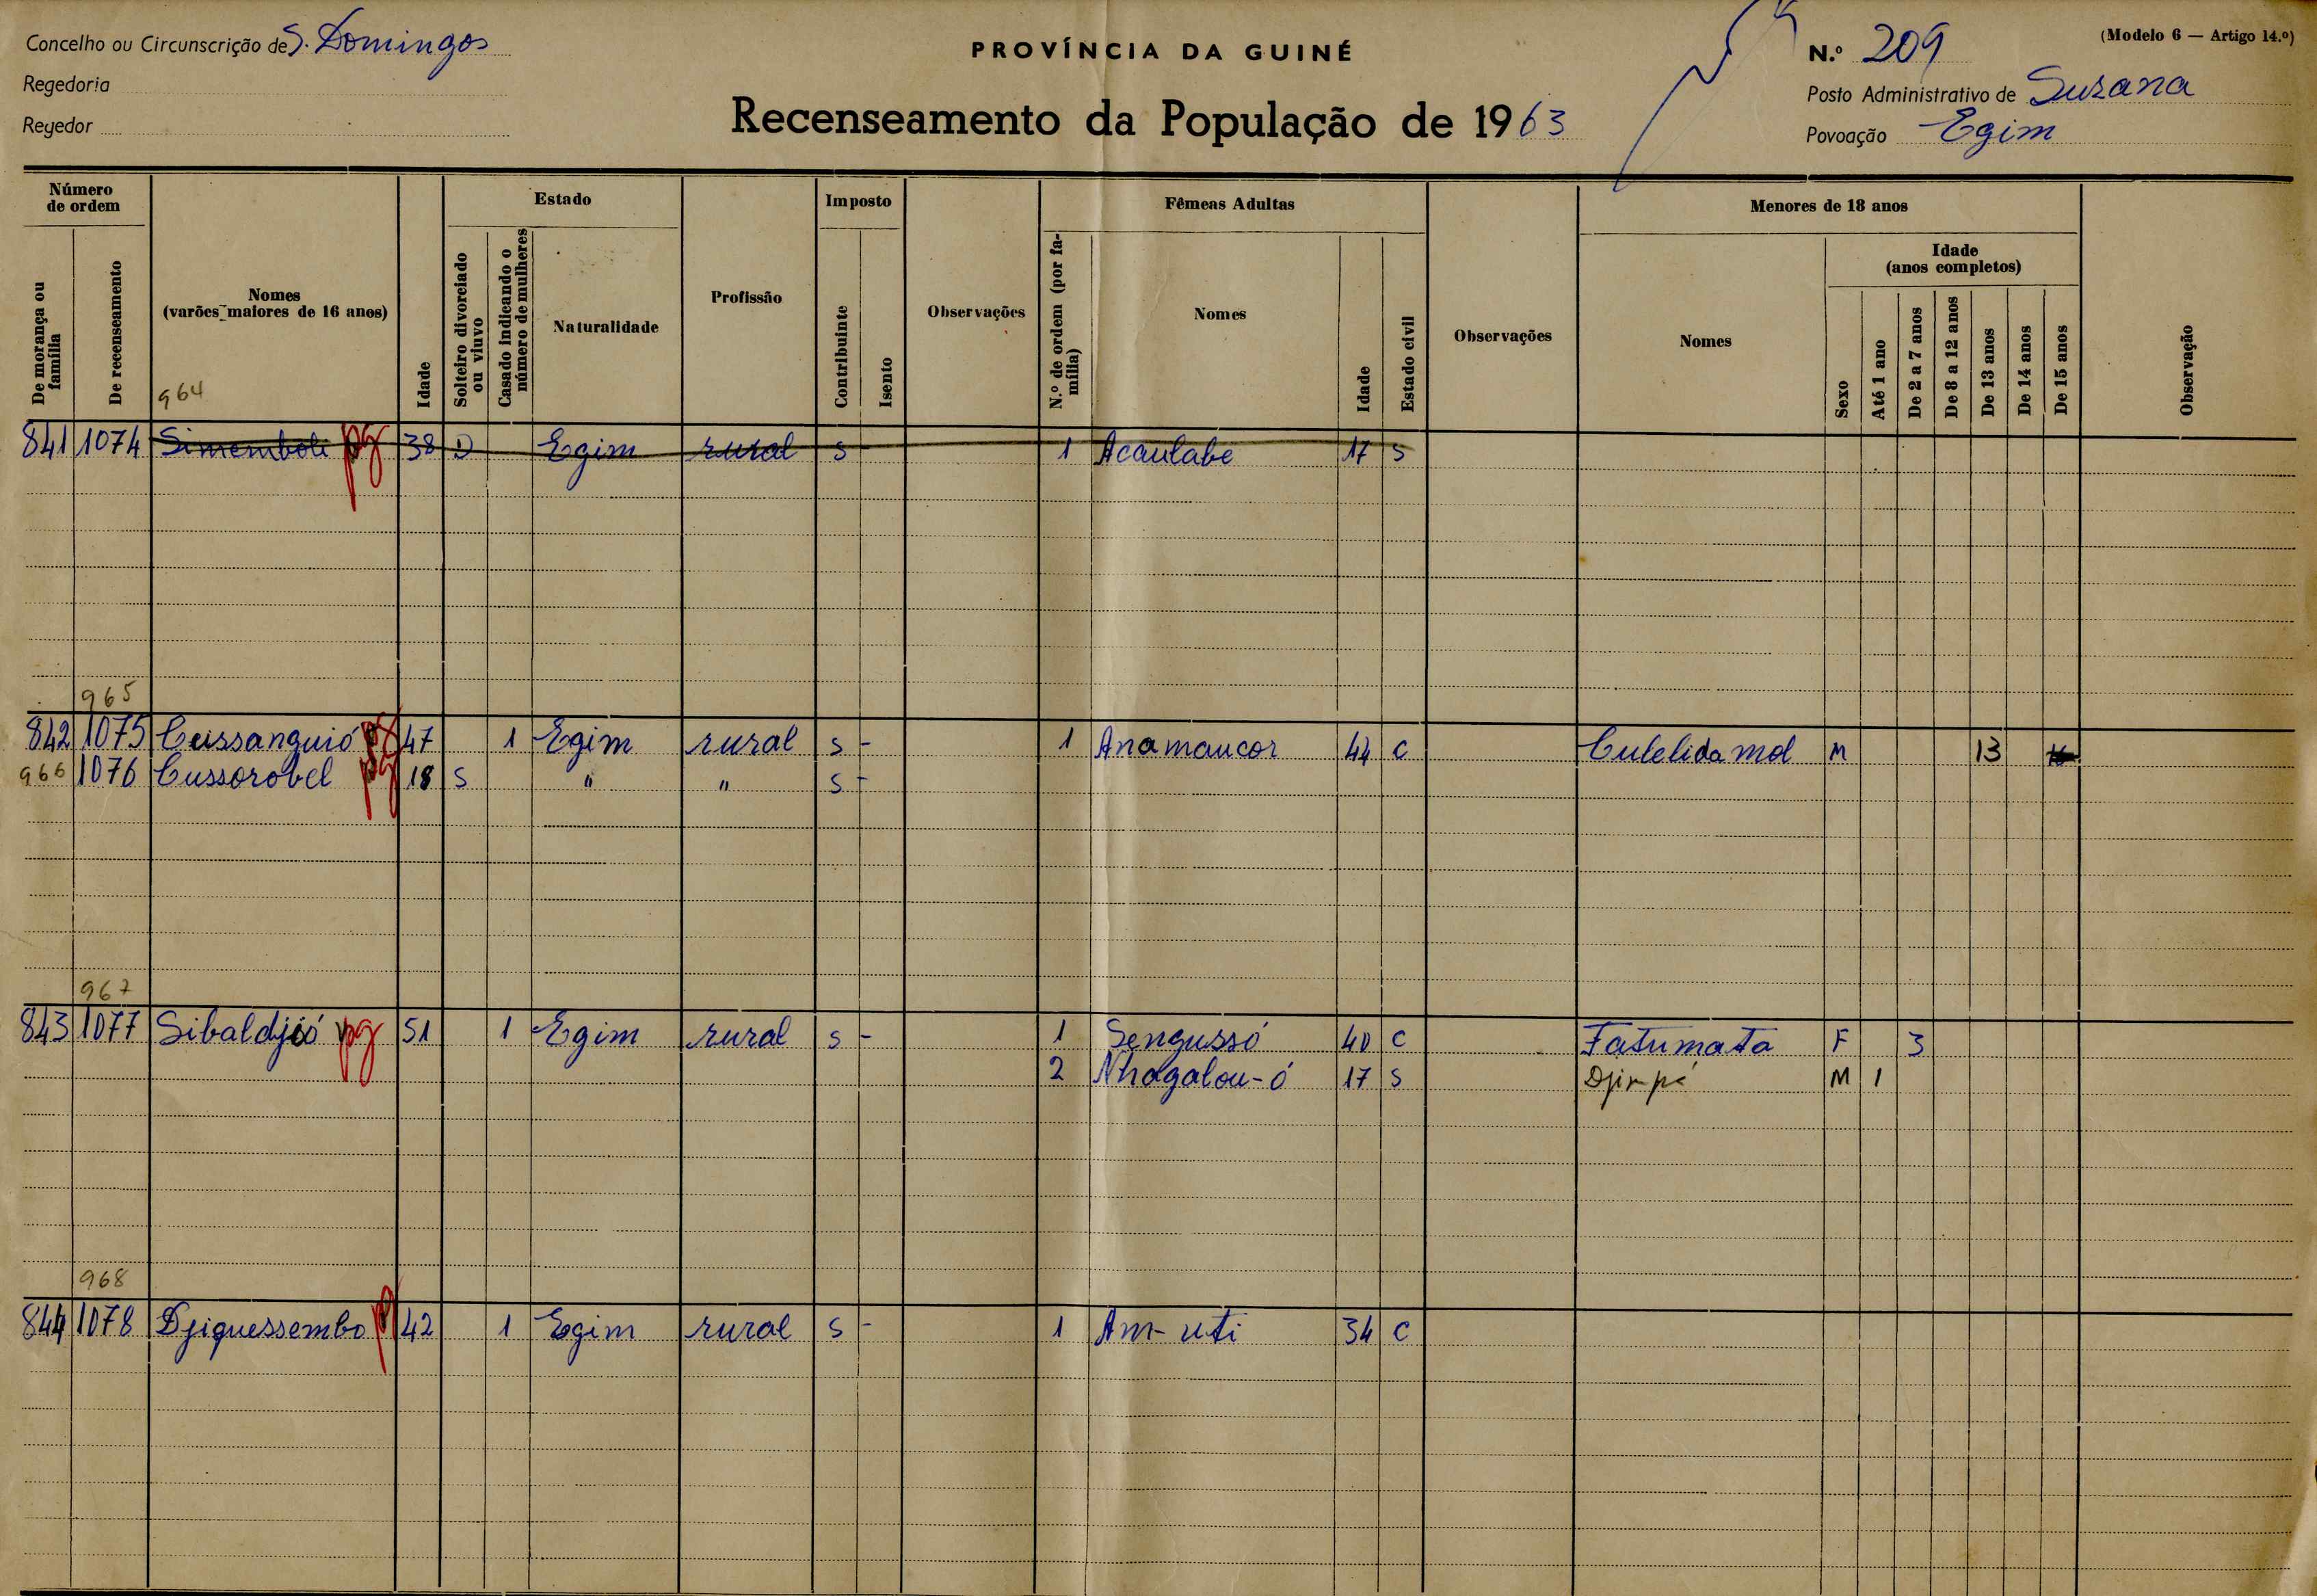 Concelho ou Circunscrição de S. Domingos
Regedoria
Regedor
PROVÍNCIA DA GUINÉ
Recenseamento da População de 1963
(Modelo 6 — Artigo 14.º)
N.º 209
Posto Administrativo de Suzana
Povoação Egim
Número de ordem
De morança ou família
De recenseamento
Nomes
(varões maiores de 16 anos)
Idade
Estado
Solteiro divorciado ou viuvo
Casado indicando o número de mulheres
Naturalidade
Profissão
Imposto
Contribuinte
Isento
Observações
Fêmeas Adultas
N.º de ordem (por família)
Nomes
Idade
Estado civil
Observações
Menores de 18 anos
Nomes
Sexo
Idade
(anos completos)
Até 1 ano
De 2 a 7 anos
De 8 a 12 anos
De 13 anos
De 14 anos
De 15 anos
Observação
964
841 1074 Simemboli pg 38 D Egim rural S - 1 Acaulabe 17 S
965
842 1075 Cussanguió pg 47 1 Egim rural S - 1 Anamaucor 44 C Culelidamol M 13
966 1076 Cussorobel pg 18 S " " S -
967
843 1077 Sibaldjió pg 51 1 Egim rural S - 1 Sengussó 40 C Fatumata F 3
2 Nhagalou-ó 17 S M 1
968
844 1078 Djiquessembo 42 1 Egim rural S - 1 Am-uti 34 C